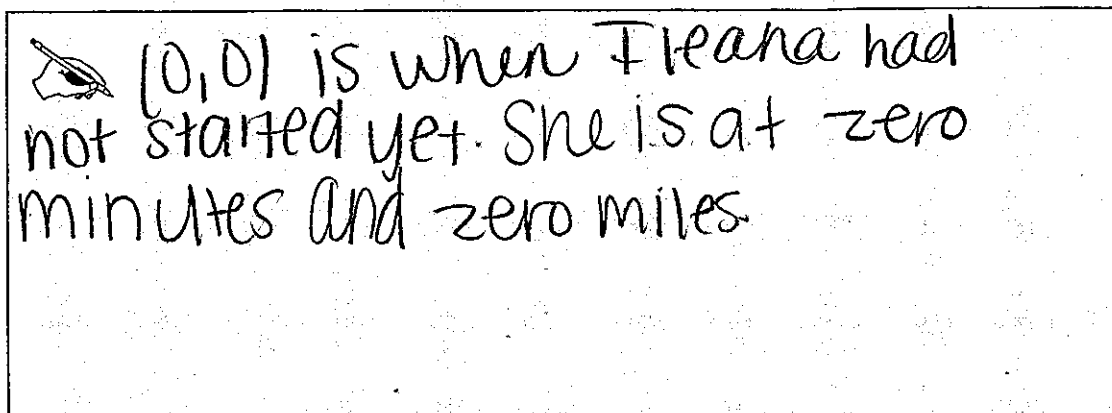 (0,0) is when Ileana had
not started yet. She is at zero
minutes and zero miles.